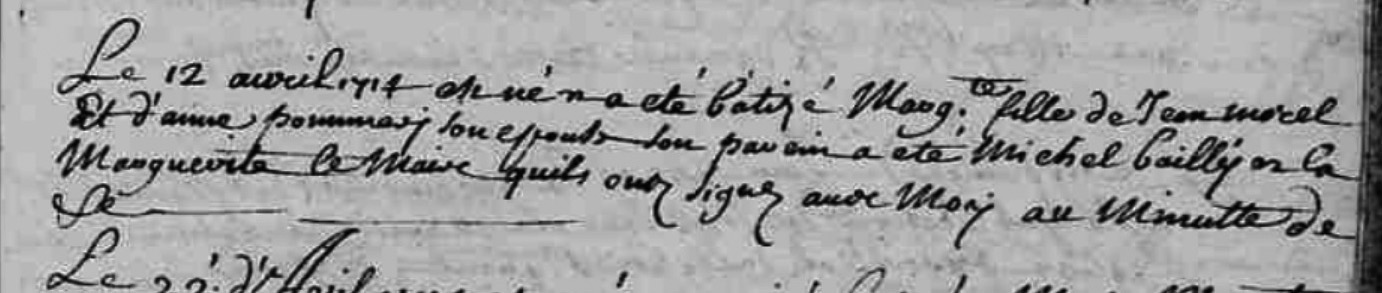 Le 12 avvril 1714 est né n a eté bâtizé Marg.te fille de Jean morel
Et d'anne pommery son espouse son parein a eté Michel bailly et la
Marguerite le Maire quils ont signez avec Moy au Minutte de
Le 22. d'Avril